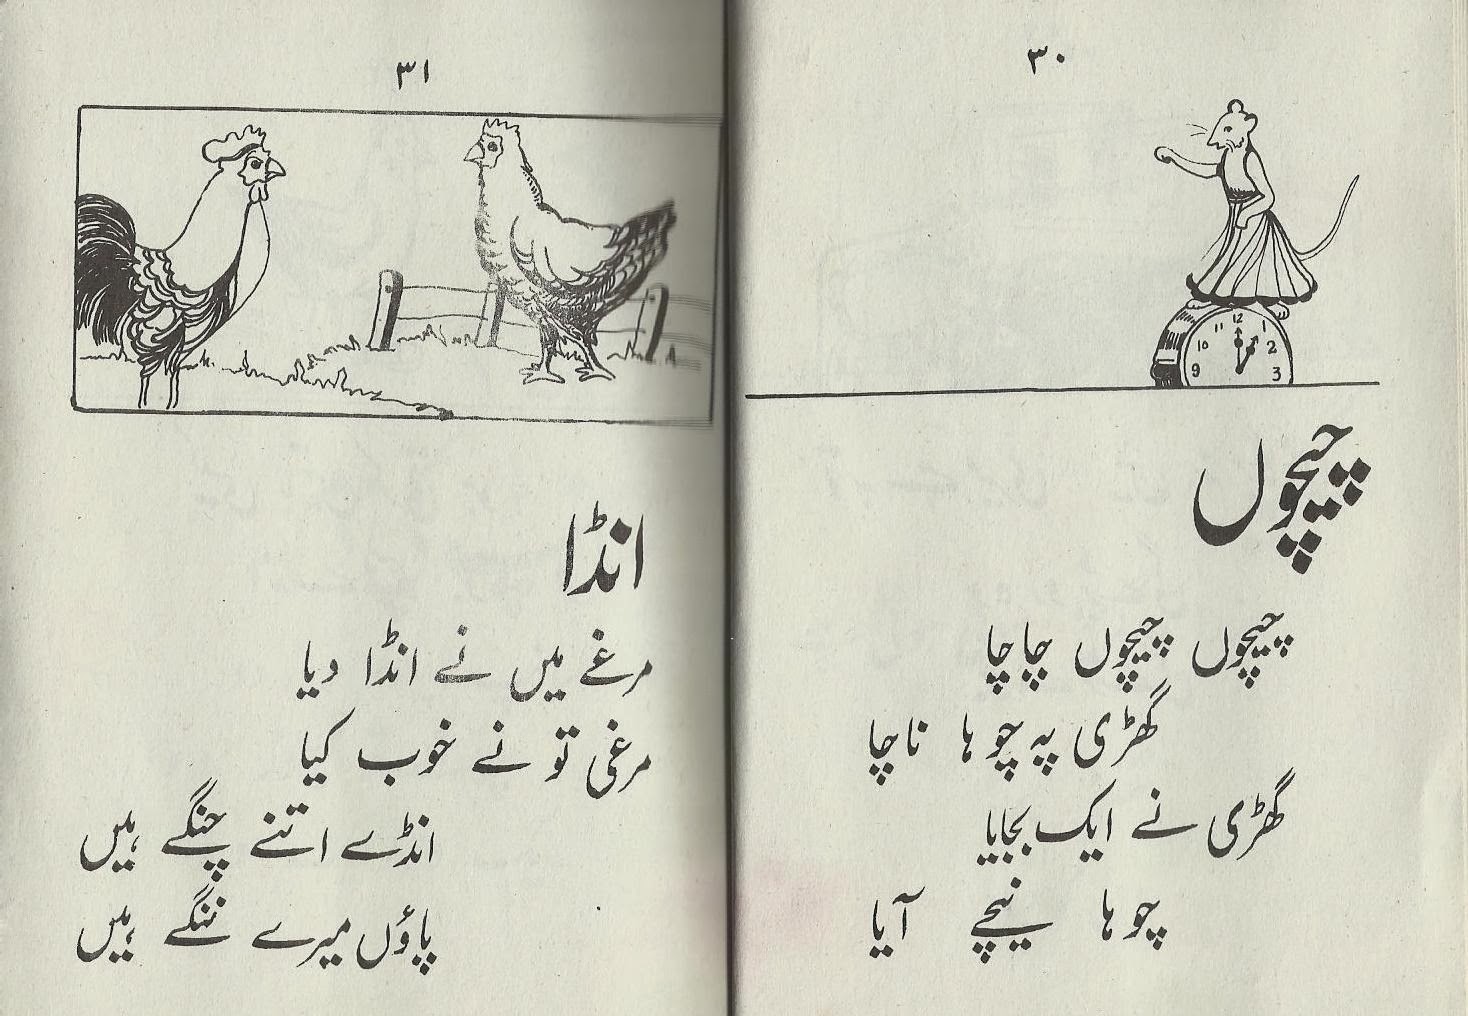 ۳۰
12
11
1
10
2
9
3
چیچوں
چیچوں چیچوں چاچا
گھڑی پہ چوہا ناچا
گھڑی نے ایک بجایا
چوہا نیچے آیا
۳۱
انڈا
مرغے میں نے انڈا دیا
مرغی تو نے خوب کیا
انڈے اتنے چنگے ہیں
پاؤں میرے ننگے ہیں